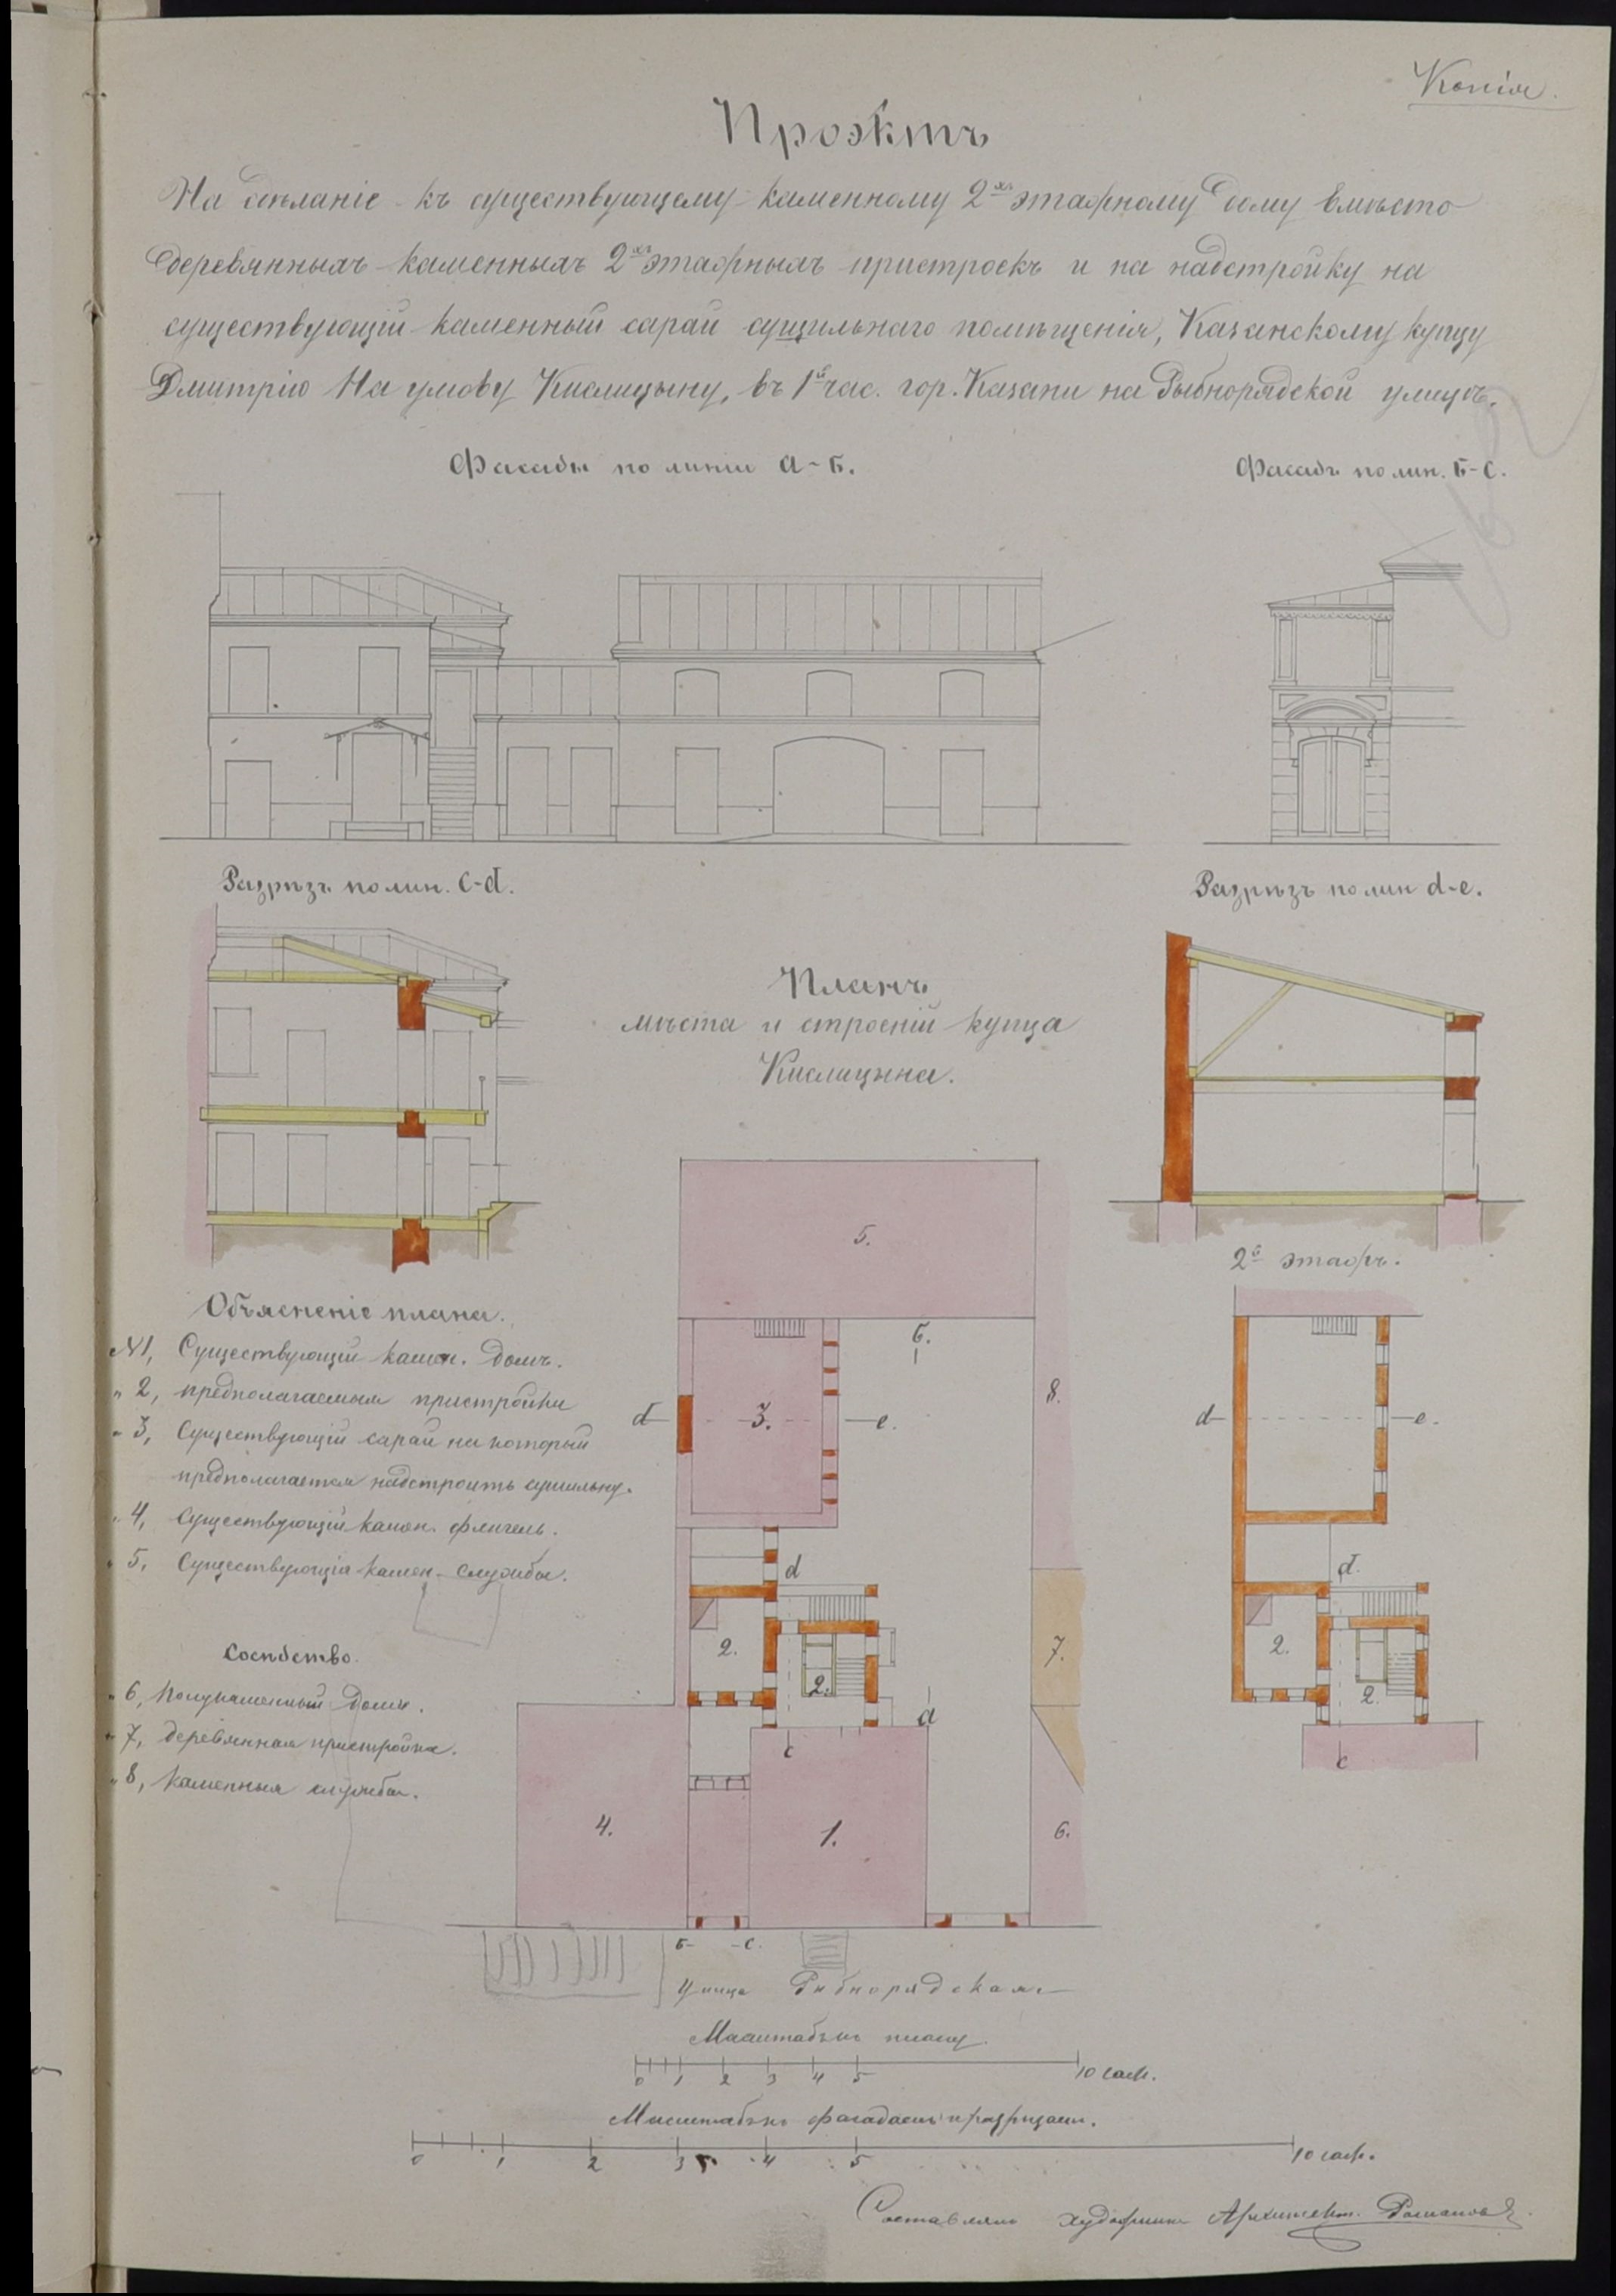 Копія.
Проэктъ
На дѣланіе къ существующему каменному 2хъ этажному дому вмѣсто
деревянныхъ каменныхъ 2хъ этажныхъ пристроекъ и на надстройку на
существующій каменный сарай сушильнаго помѣщенія, Казанскому купцу
Дмитрію Наумову Кислицыну, въ 1й час. гор. Казани на Рыбнорядской улицѣ.
Фасады по линіи а-Б. Фасадъ по лин. Б-с.
Разрѣзъ по лин. c-d. Разрѣзъ по лин d-e.
Планъ
мѣста и строеній купца
Кислицына.
2й этажъ.
Объясненіе плана.
№1, Существующій камен. домъ.
" 2, предполагаемыя пристройки
" 3, Существующій сарай на который
предполагается надстроить сушильну.
" 4, Существующій камен. флигель.
" 5, Существующія камен. службы.
Сосѣдство.
" 6, Полукаменный домъ.
" 7, деревянная пристройка.
" 8, каменныя службы.
5.
Б.
8.
d 3. e.
d e.
d
d.
2.
7.
2.
2.
2.
а
c
c
4.
1.
6.
Б- -с.
улица Рыбнорядская
Масштабъ плану.
0 1 2 3 4 5 10 саж.
Масштабъ фасадамъ и разрѣзамъ.
0 1 2 3 4 5 10 саж.
Составлялъ художникъ Архитект. Романовъ